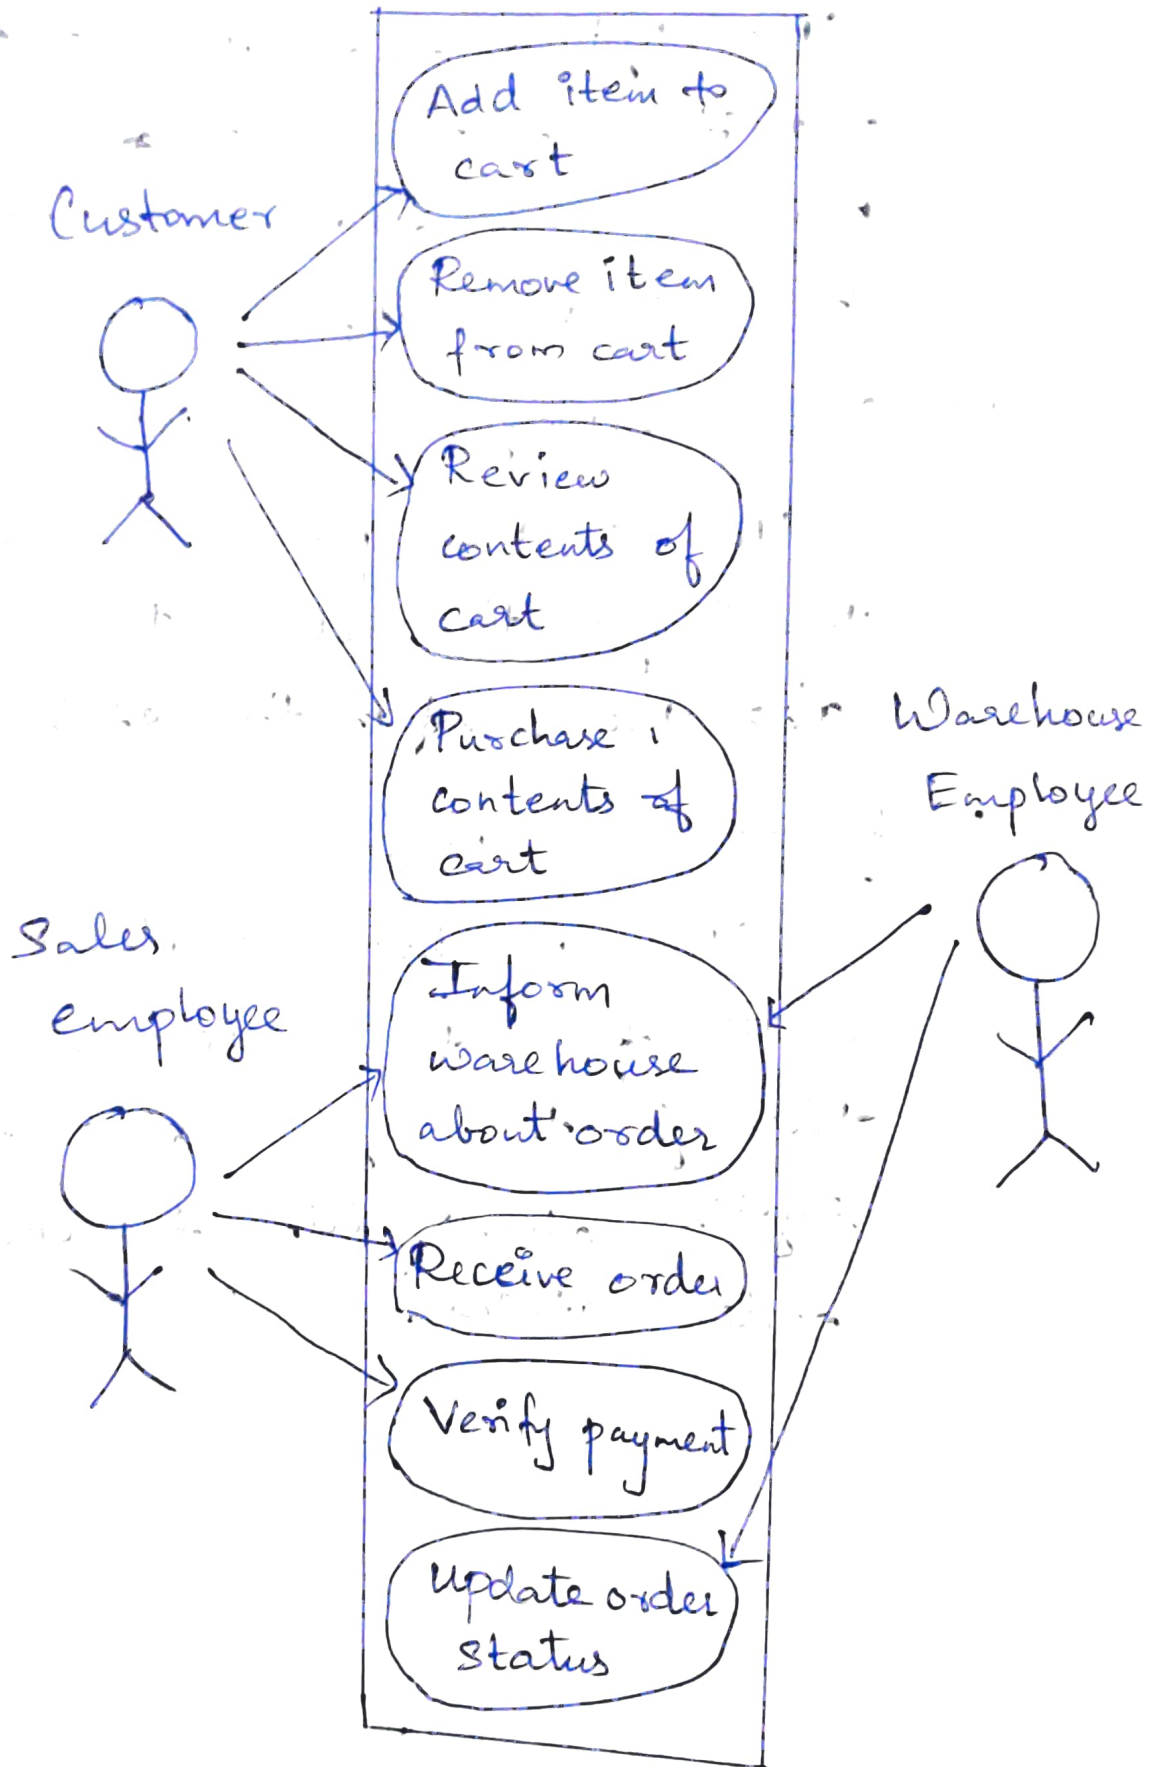 Add item to
cart
Customer
Remove item
from cart
Review
contents of
cart
Purchase
contents of
cart
Warehouse
Employee
Sales
employee
Inform
warehouse
about order
Receive order
Verify payment
Update order
status